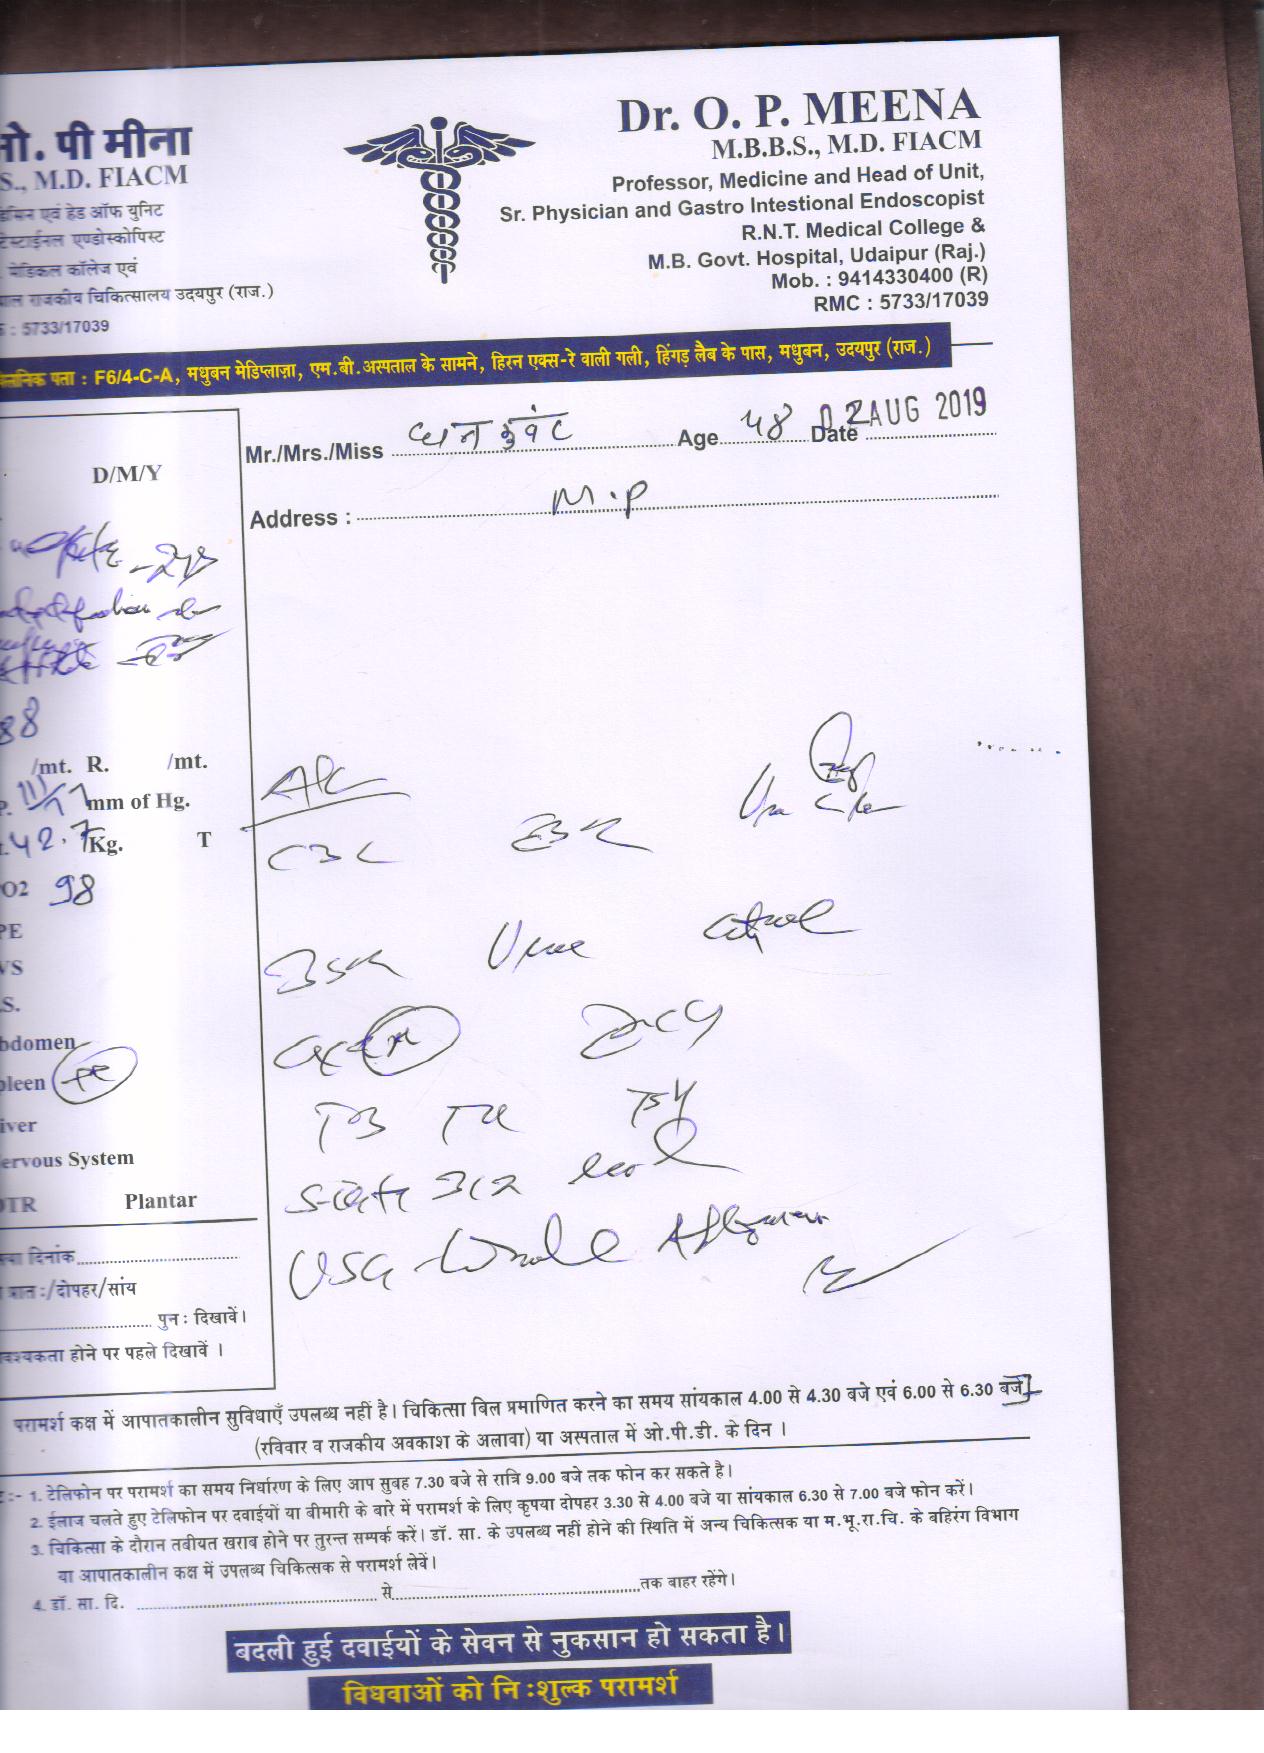 ओ. पी मीना
Dr. O. P. MEENA
S., M.D. FIACM
M.B.B.S., M.D. FIACM
एवं हेड ऑफ यूनिट
Professor, Medicine and Head of Unit,
एण्डोस्कोपिस्ट
Sr. Physician and Gastro Intestional Endoscopist
मेडिकल कॉलेज एवं
R.N.T. Medical College &
राजकीय चिकित्सालय उदयपुर (राज.)
M.B. Govt. Hospital, Udaipur (Raj.)
Mob. : 9414330400 (R)
: 5733/17039
RMC : 5733/17039
पता : F6/4-C-A, मधुबन मेडिप्लाज़ा, एम.बी.अस्पताल के सामने, हिरन एक्स-रे वाली गली, हिंगड़ लैब के पास, मधुबन, उदयपुर (राज.)
Mr./Mrs./Miss धन कुवंर Age 48 Date 02 AUG 2019
D/M/Y
Address : M.P
88
/mt. R. /mt.
P. 111/77 mm of Hg.
42.7 Kg. T
CBC ESR
O2 98
PE
VS
Urine
.S.
bdomen
pleen +ve
iver
T3 T4 TSH
ervous System
DTR Plantar
B12 level
USG Whole Abdomen
दिनांक
प्रातः/दोपहर/सांय
पुनः दिखावें।
होने पर पहले दिखावें ।
परामर्श कक्ष में आपातकालीन सुविधाएँ उपलब्ध नहीं है। चिकित्सा बिल प्रमाणित करने का समय सांयकाल 4.00 से 4.30 बजे एवं 6.00 से 6.30 बजे
(रविवार व राजकीय अवकाश के अलावा) या अस्पताल में ओ.पी.डी. के दिन ।
:- 1. टेलिफोन पर परामर्श का समय निर्धारण के लिए आप सुबह 7.30 बजे से रात्रि 9.00 बजे तक फोन कर सकते है।
2. ईलाज चलते हुए टेलिफोन पर दवाईयों या बीमारी के बारे में परामर्श के लिए कृपया दोपहर 3.30 से 4.00 बजे या सांयकाल 6.30 से 7.00 बजे फोन करें।
3. चिकित्सा के दौरान तबीयत खराब होने पर तुरन्त सम्पर्क करें। डॉ. सा. के उपलब्ध नहीं होने की स्थिति में अन्य चिकित्सक या म.भू.रा.चि. के बहिरंग विभाग
या आपातकालीन कक्ष में उपलब्ध चिकित्सक से परामर्श लेवें।
4. डॉ. सा. दि. से तक बाहर रहेंगे।
बदली हुई दवाईयों के सेवन से नुकसान हो सकता है।
विधवाओं को निःशुल्क परामर्श